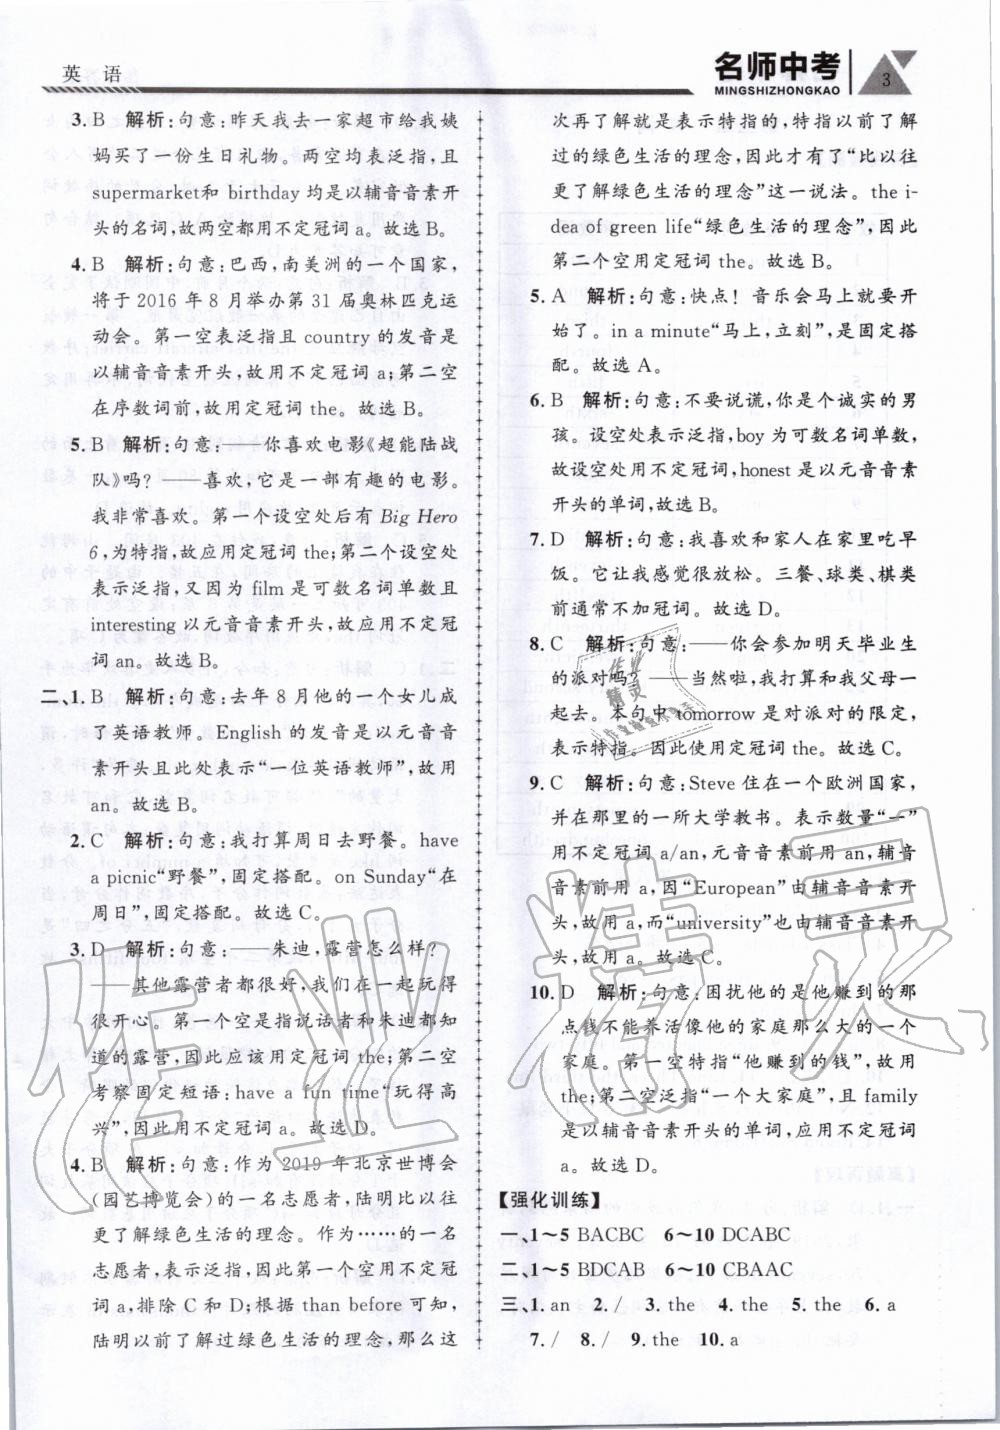 英 语
名师中考
MINGSHIZHONGKAO
3
3. B 解析:句意:昨天我去一家超市给我姨
妈买了一份生日礼物。两空均表泛指,且
supermarket和 birthday 均是以辅音音素开
头的名词,故两空都用不定冠词 a。故选 B。
4. B 解析:句意:巴西,南美洲的一个国家,
将于 2016 年 8 月举办第 31 届奥林匹克运
动会。第一空表泛指且 country 的发音是
以辅音音素开头,故用不定冠词 a;第二空
在序数词前,故用定冠词 the。故选 B。
5. B 解析:句意:——你喜欢电影《超能陆战
队》吗?——喜欢,它是一部有趣的电影。
我非常喜欢。第一个设空处后有 Big Hero
6,为特指,故应用定冠词 the;第二个设空处
表示泛指,又因为 film 是可数名词单数且
interesting 以元音音素开头,故应用不定冠
词 an。故选 B。
二、1. B 解析:句意:去年 8 月他的一个女儿成
了英语教师。English 的发音是以元音音
素开头且此处表示“一位英语教师”,故用
an。故选 B。
2. C 解析:句意:我打算周日去野餐。have
a picnic“野餐”,固定搭配。on Sunday“在
周日”,固定搭配。故选 C。
3. D 解析:句意:——朱迪,露营怎么样?
——其他露营者都很好,我们在一起玩得
很开心。第一个空是指说话者和朱迪都知
道的露营,因此应该用定冠词 the;第二空
考察固定短语:have a fun time“玩得高
兴”,因此用不定冠词 a。故选 D。
4. B 解析:句意:作为 2019 年北京世博会
(园艺博览会)的一名志愿者,陆明比以往
更了解绿色生活的理念。作为……的一名
志愿者,表示泛指,因此第一个空用不定冠
词 a,排除 C 和 D;根据 than before 可知,
陆明以前了解过绿色生活的理念,那么这
次再了解就是表示特指的,特指以前了解
过的绿色生活的理念,因此才有了“比以往
更了解绿色生活的理念”这一说法。the i-
dea of green life“绿色生活的理念”,因此
第二个空用定冠词 the。故选 B。
5. A 解析:句意:快点!音乐会马上就要开
始了。in a minute“马上,立刻”,是固定搭
配。故选 A。
6. B 解析:句意:不要说谎,你是个诚实的男
孩。设空处表示泛指,boy 为可数名词单数,
故设空处用不定冠词,honest 是以元音音素
开头的单词,故选 B。
7. D 解析:句意:我喜欢和家人在家里吃早
饭。它让我感觉很放松。三餐、球类、棋类
前通常不加冠词。故选 D。
8. C 解析:句意:——你会参加明天毕业生
的派对吗?——当然啦,我打算和我父母一
起去。本句中 tomorrow 是对派对的限定,
表示特指。因此使用定冠词 the。故选 C。
9. C 解析:句意:Steve 住在一个欧洲国家,
并在那里的一所大学教书。表示数量“一”
用不定冠词 a/an,元音音素前用 an,辅音
音素前用 a,因“European”为辅音音素开
头,故用 a,而“university”也由辅音音素开
头,故用 a。故选 C。
10. D 解析:句意:困扰他的是他赚到的那
点钱不能养活像他的家庭那么大的一个
家庭。第一空特指“他赚到的钱”,故用
the;第二空泛指“一个大家庭”,且 family
是以辅音音素开头的单词,应用不定冠词
a。故选 D。
【强化训练】
一、1～5 BACBC 6～10 DCABC
二、1～5 BDCAB 6～10 CBAAC
三、1. an 2. / 3. the 4. the 5. the 6. a
7. / 8. / 9. the 10. a
作业精灵
作业
精灵